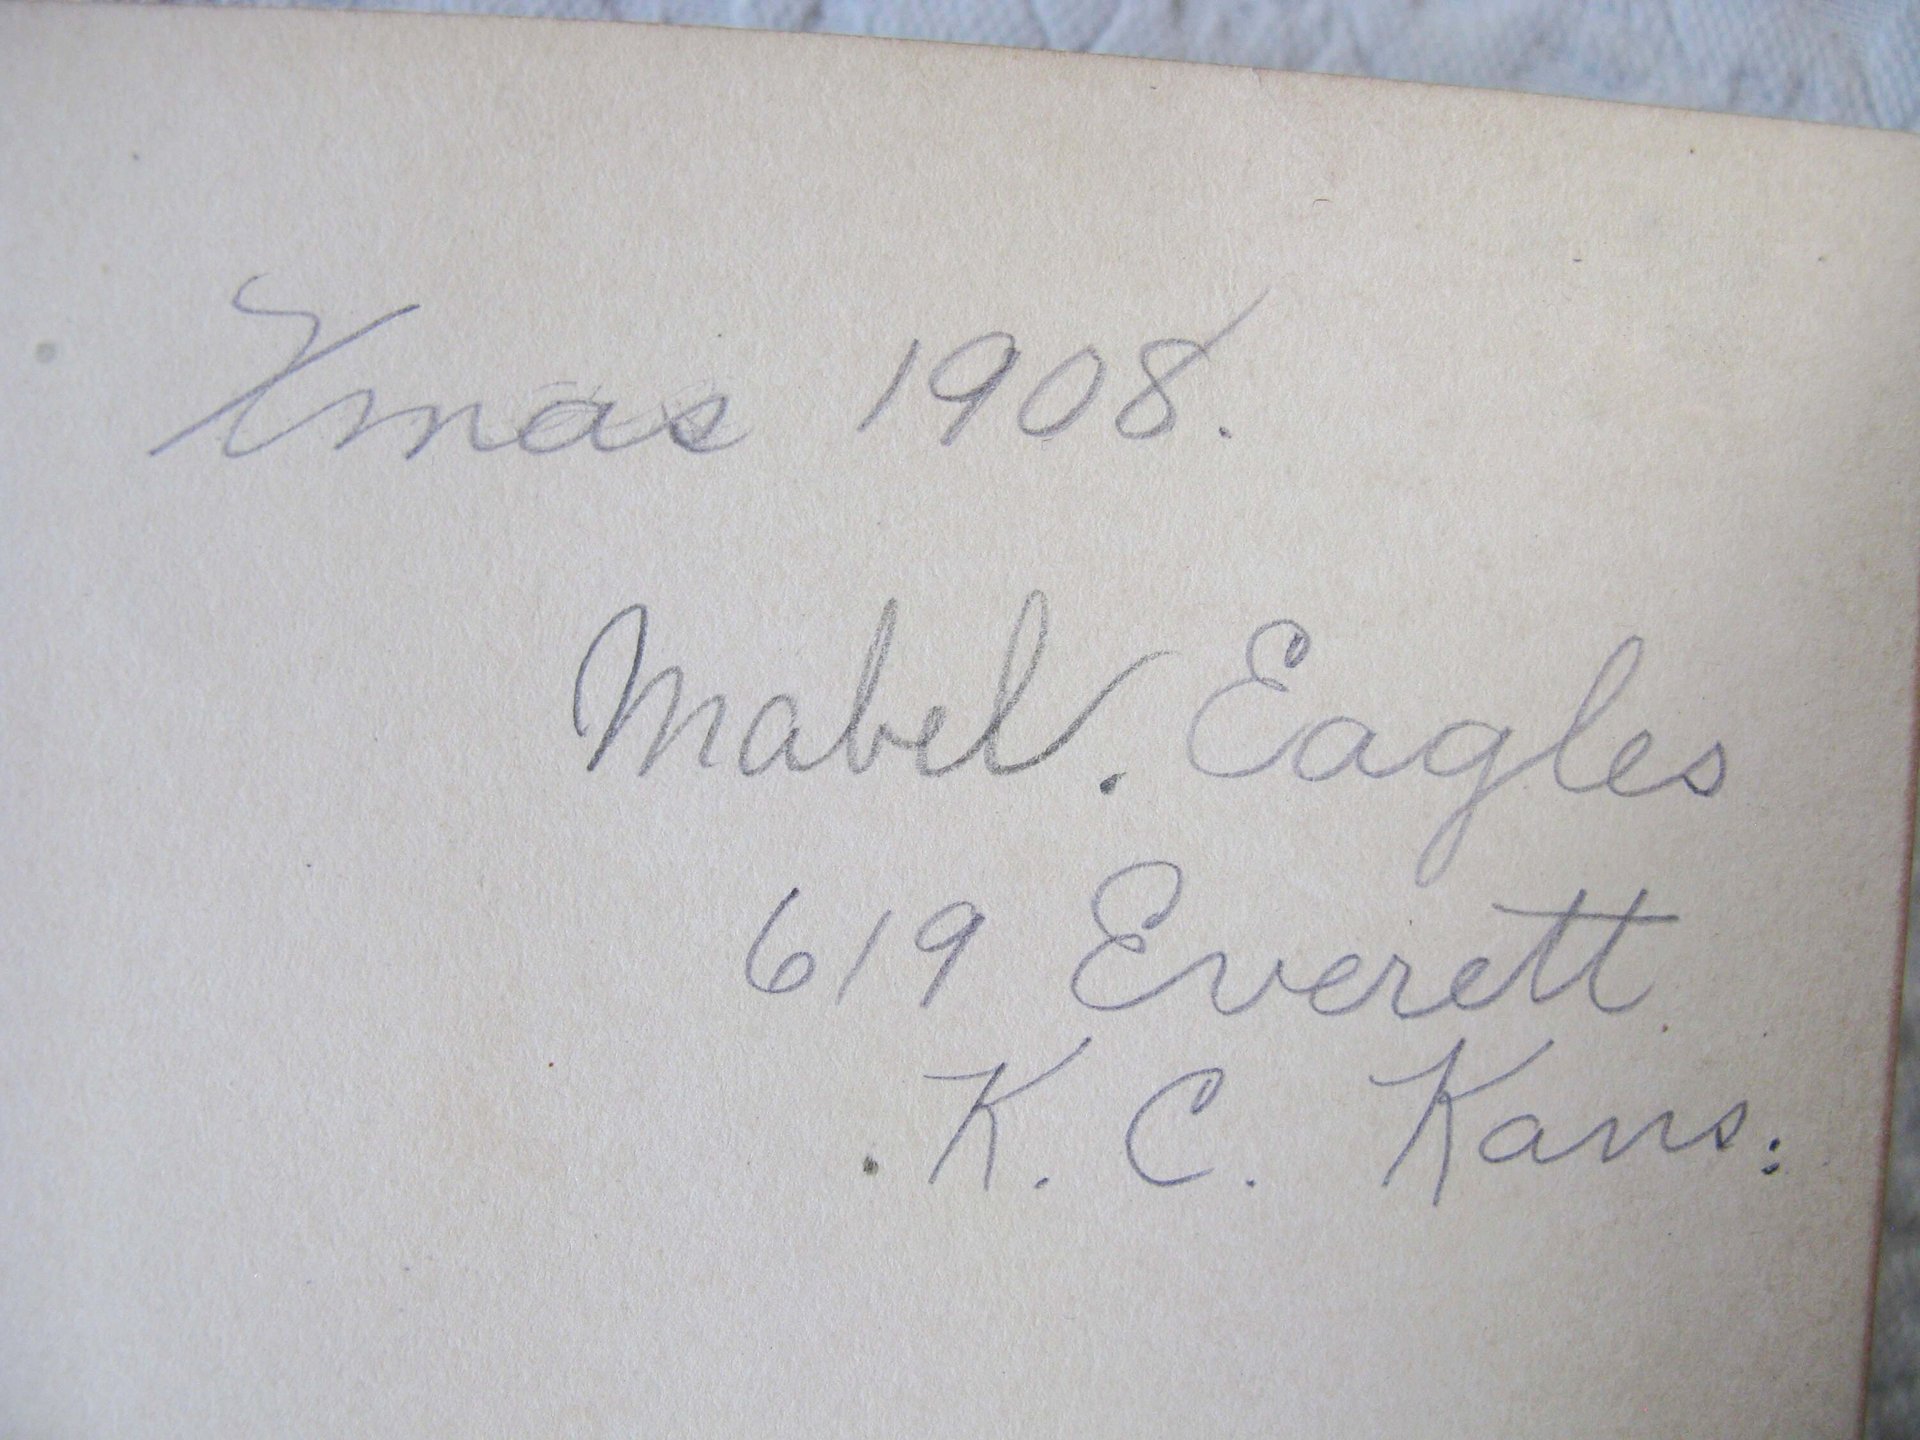 Xmas 1908.
Mabel. Eagles
619 Everett
K. C. Kans.